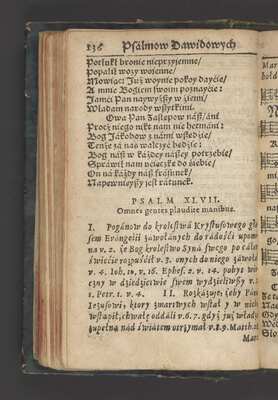 136 Psalmow Dawidowych
Potłukł bronie nieprzyjemne/
Popalił wozy woienne/
Mowiąc: Już woynie pokoy dayćie/
A mnie Bogiem swoim poznayćie:
Jamći Pan naywyższy w źiemi/
Władam narody wszytkimi.
Owa Pan Zastępow náß/ áni
Proch niego nikt nam nie
Bog Jakobow z námi wszędźie/
Tenże zá nas walczyć będźie:
Bog náß w káżdey nászey potrzebie/
Spráwił nam ućieczkę do śiebie/
On ná káżdy náß frásunek/
Napewnieyszy jest rátunek.
PSALM XLVII.
Omnes gentes plaudite manibus.
I. Pogánow do krolestwá Krystusowego głosem
Ewangelii záwołánych do rádośći upomina
v. 2. że Bog krolestwo Syná swego po cáłem
świećie rozpuśćił v. 3. onych do niego záwołał
v. 4. Joh. 10. v. 16. Ephes. 2. v. 14. pobyt wieczny
w dźiedźictwie swem wydźieliwszy v. 5.
1. Petr. 1. v. 4. II. Rozkázuje, żeby Pánu
Jezusowi, ktory zmartwych wstał y w niebo
wstąpił, chwałę oddáli v. 6. 7. gdyż już władzą
zupełną nád świátem otrzymał v. 8. 9. Matth. 28
Marc.